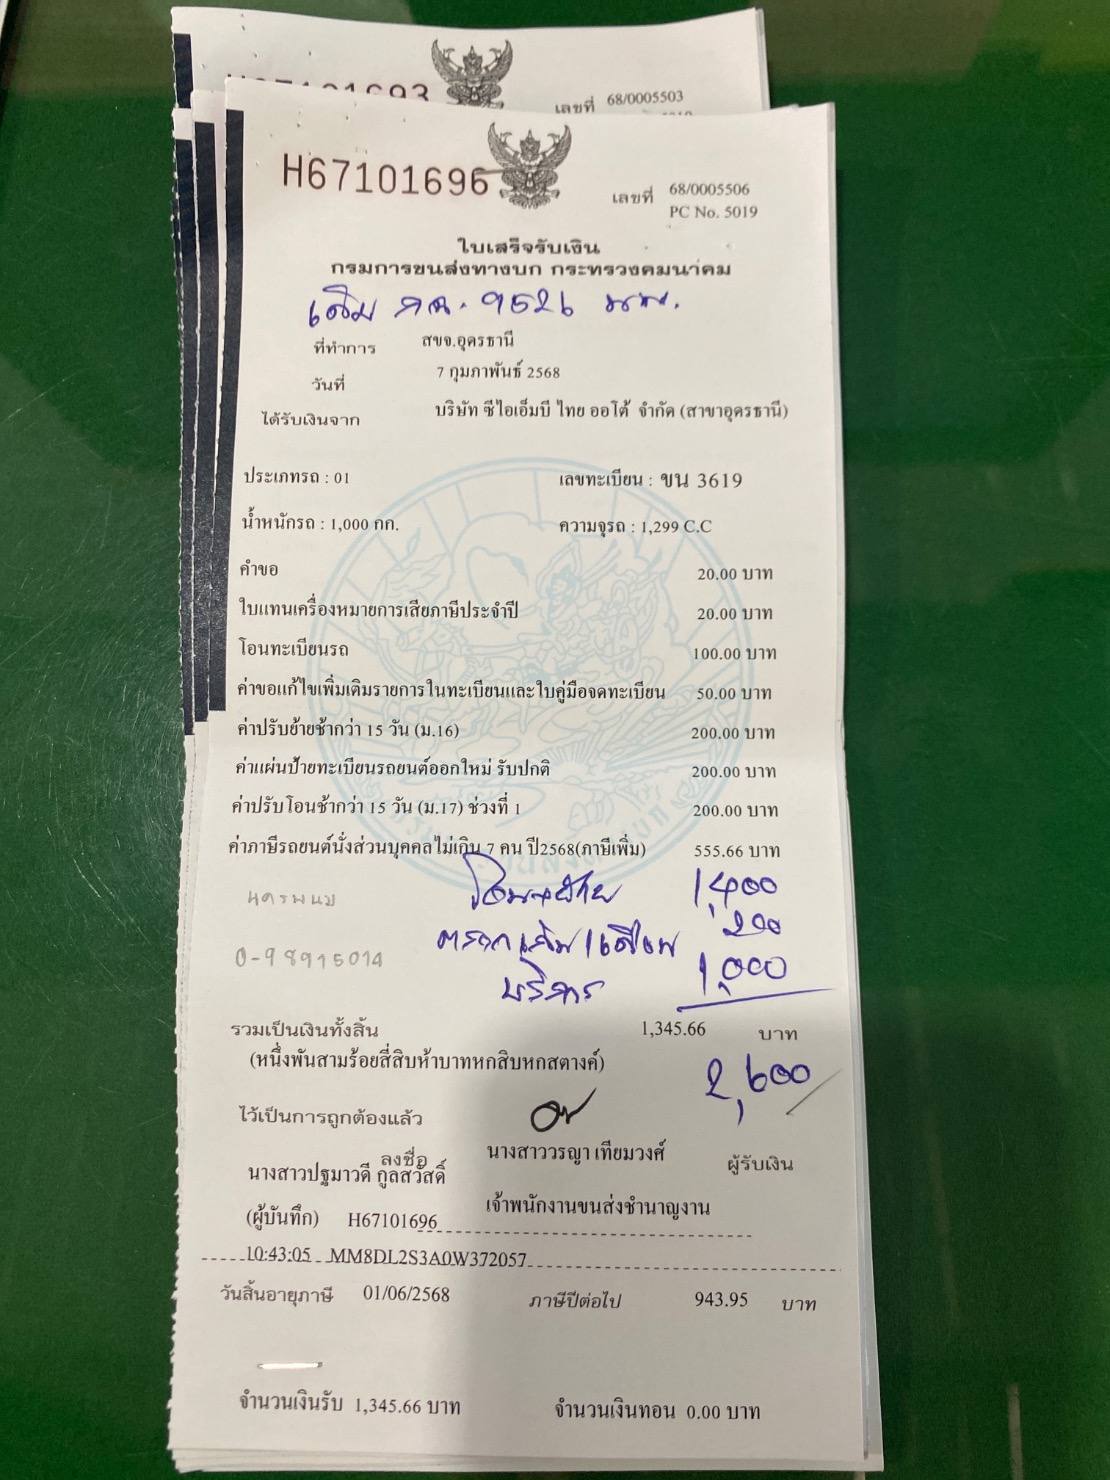 101693
เลขที่ 68/0005503
H67101696
เลขที่ 68/0005506
PC No. 5019
ใบเสร็จรับเงิน
กรมการขนส่งทางบก กระทรวงคมนาคม
เดิม กค. 9526 นพ.
ที่ทำการ สขจ.อุดรธานี
วันที่ 7 กุมภาพันธ์ 2568
ได้รับเงินจาก บริษัท ซีไอเอ็มบี ไทย ออโต้ จำกัด (สาขาอุดรธานี)
ประเภทรถ : 01 เลขทะเบียน : ขน 3619
น้ำหนักรถ : 1,000 กก. ความจุรถ : 1,299 C.C
คำขอ 20.00 บาท
ใบแทนเครื่องหมายการเสียภาษีประจำปี 20.00 บาท
โอนทะเบียนรถ 100.00 บาท
ค่าขอแก้ไขเพิ่มเติมรายการในทะเบียนและใบคู่มือจดทะเบียน 50.00 บาท
ค่าปรับย้ายช้ากว่า 15 วัน (ม.16) 200.00 บาท
ค่าแผ่นป้ายทะเบียนรถยนต์ออกใหม่ รับปกติ 200.00 บาท
ค่าปรับโอนช้ากว่า 15 วัน (ม.17) ช่วงที่ 1 200.00 บาท
ค่าภาษีรถยนต์นั่งส่วนบุคคลไม่เกิน 7 คน ปี2568(ภาษีเพิ่ม) 555.66 บาท
โอน+ย้าย 1,400
นครพนม
200
0-98915014
บริการ 1,000
รวมเป็นเงินทั้งสิ้น 1,345.66 บาท
(หนึ่งพันสามร้อยสี่สิบห้าบาทหกสิบหกสตางค์)
2,600
ไว้เป็นการถูกต้องแล้ว
ลงชื่อ นางสาววรญา เทียมวงศ์ ผู้รับเงิน
นางสาวปฐมาวดี กูลสวัสดิ์
เจ้าพนักงานขนส่งชำนาญงาน
(ผู้บันทึก) H67101696
10:43:05 MM8DL2S3A0W372057
วันสิ้นอายุภาษี 01/06/2568 ภาษีปีต่อไป 943.95 บาท
จำนวนเงินรับ 1,345.66 บาท จำนวนเงินทอน 0.00 บาท